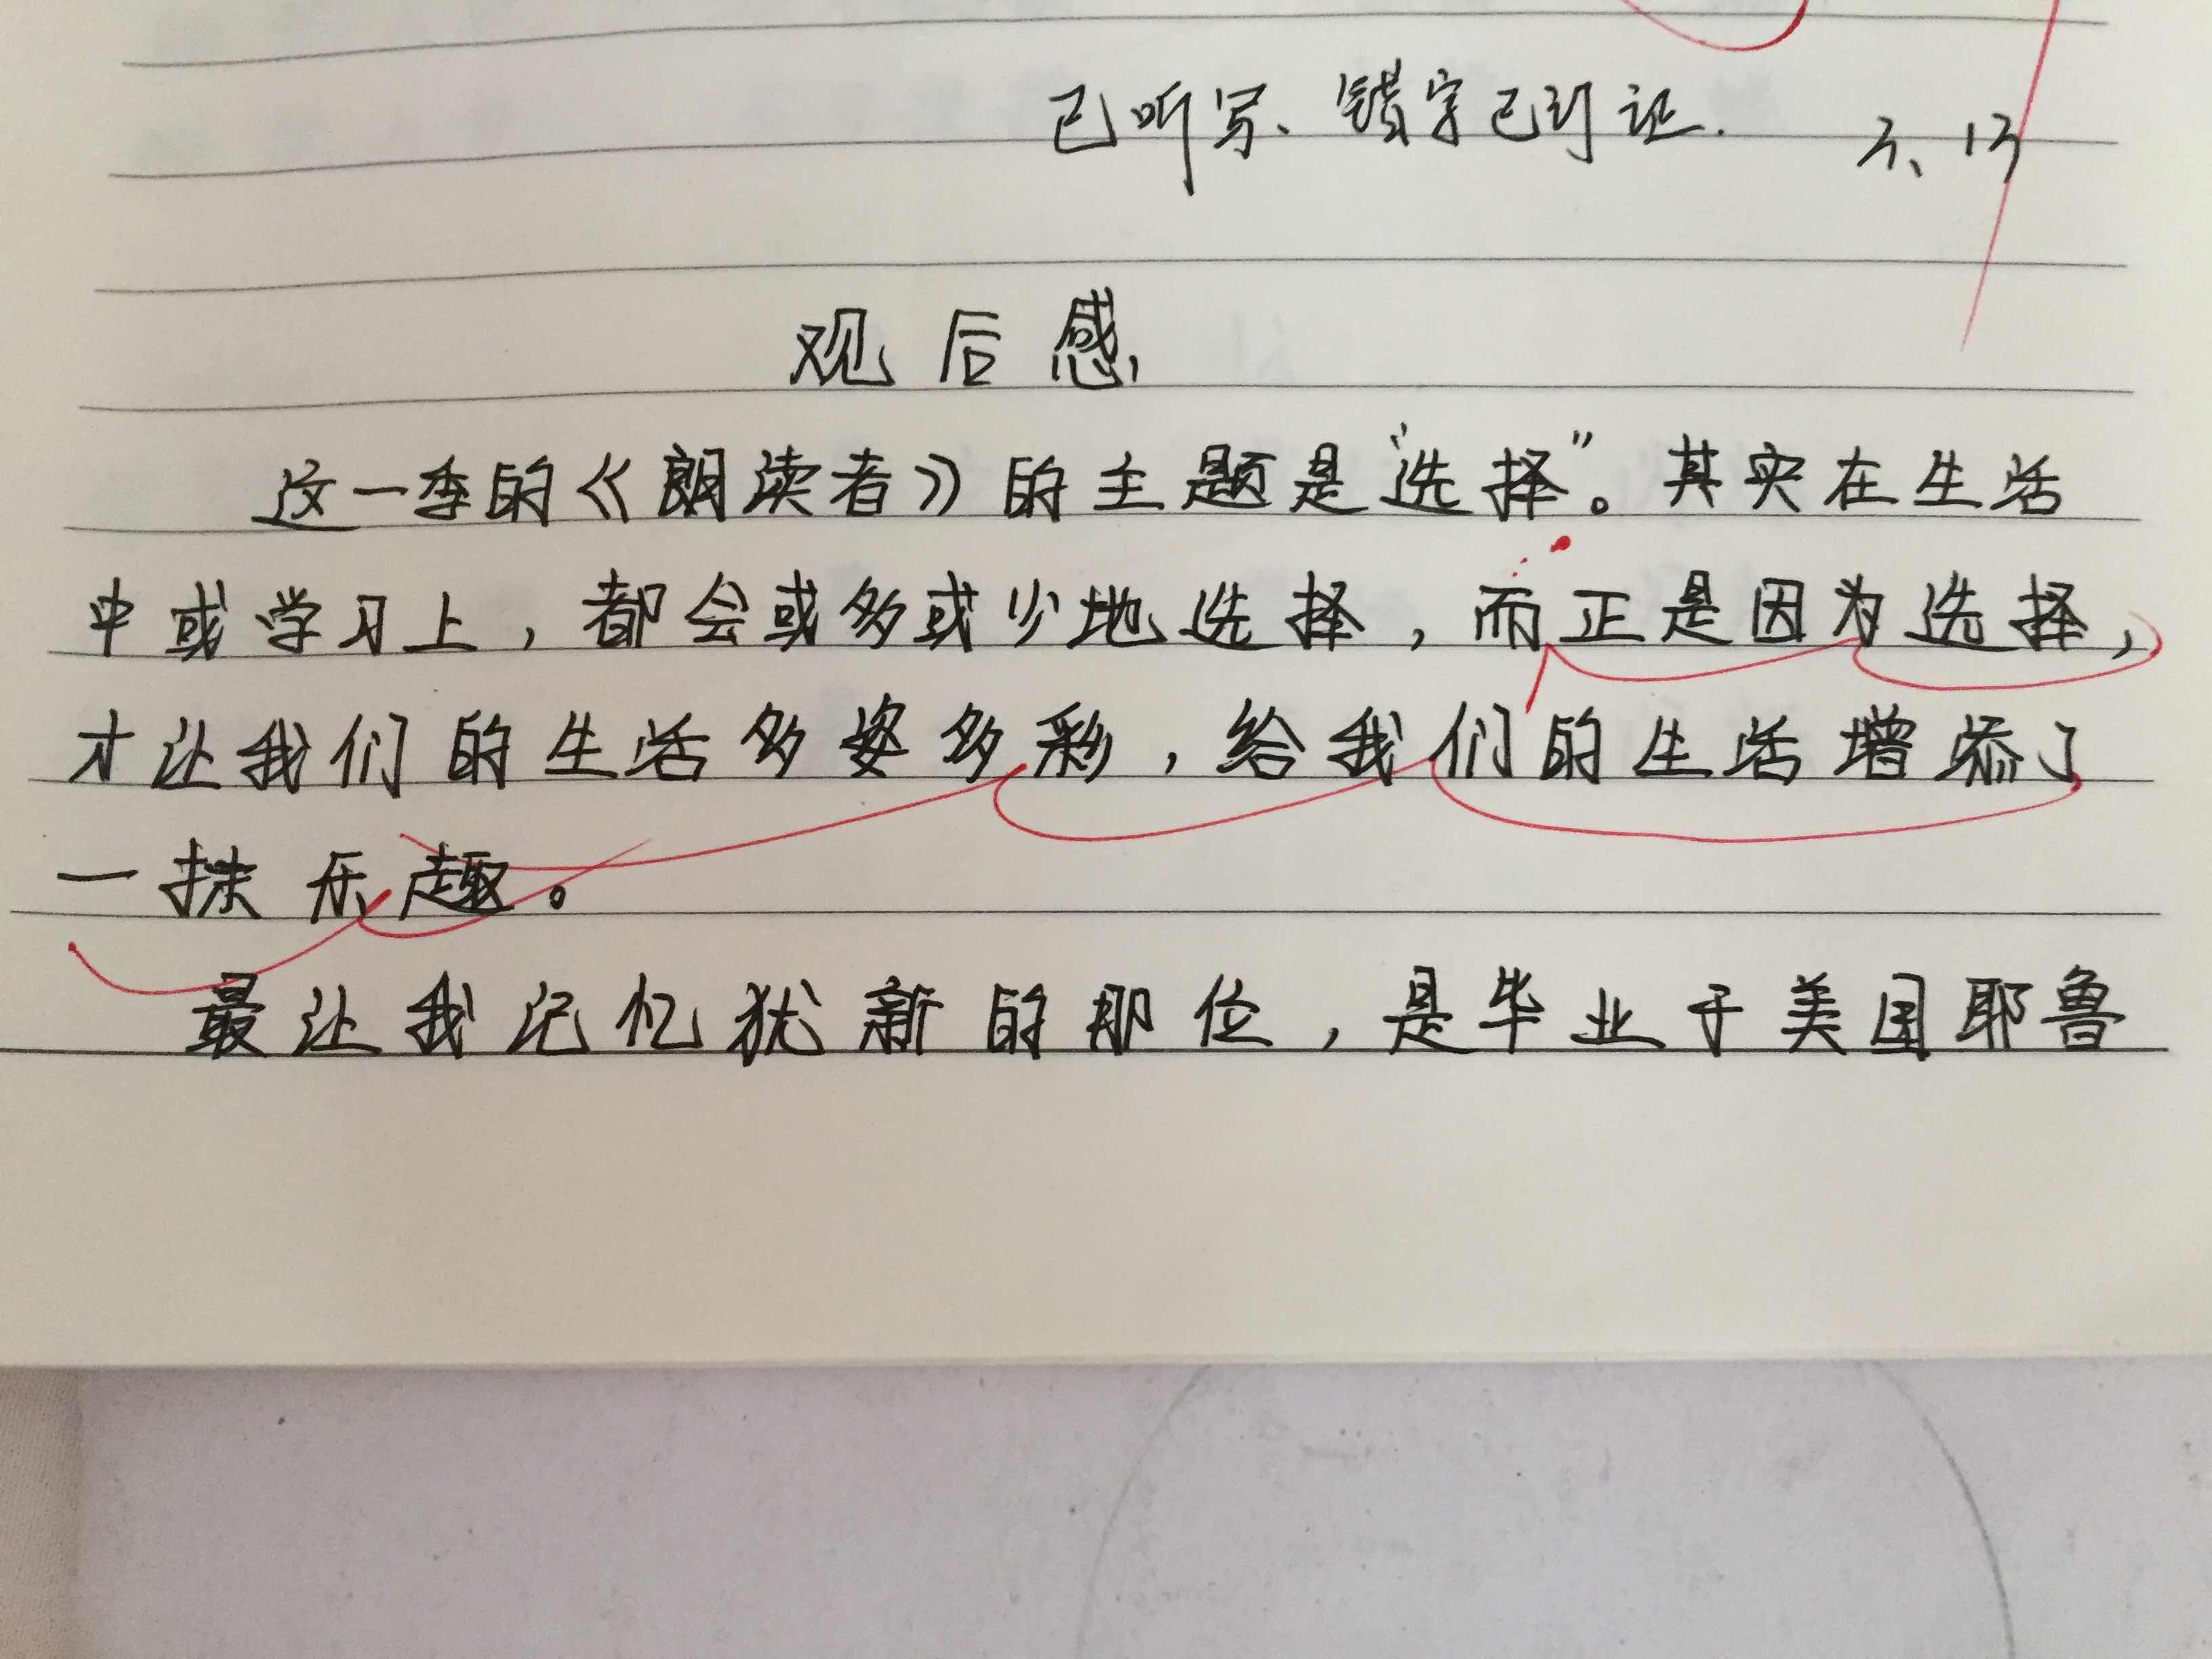 已听写、错字已订证.
观后感
这一季的《朗读者》的主题是“选择”。其实在生活
中或学习上，都会或多或少地选择，而正是因为选择，
才让我们的生活多姿多彩，给我们的生活增添了
一抹乐趣。
最让我记忆犹新的那位，是毕业于美国耶鲁